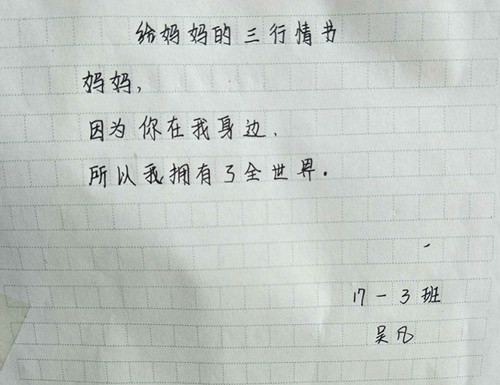 给妈妈的三行情书
妈妈，
因为你在我身边，
所以我拥有了全世界.
17-3班
吴凡